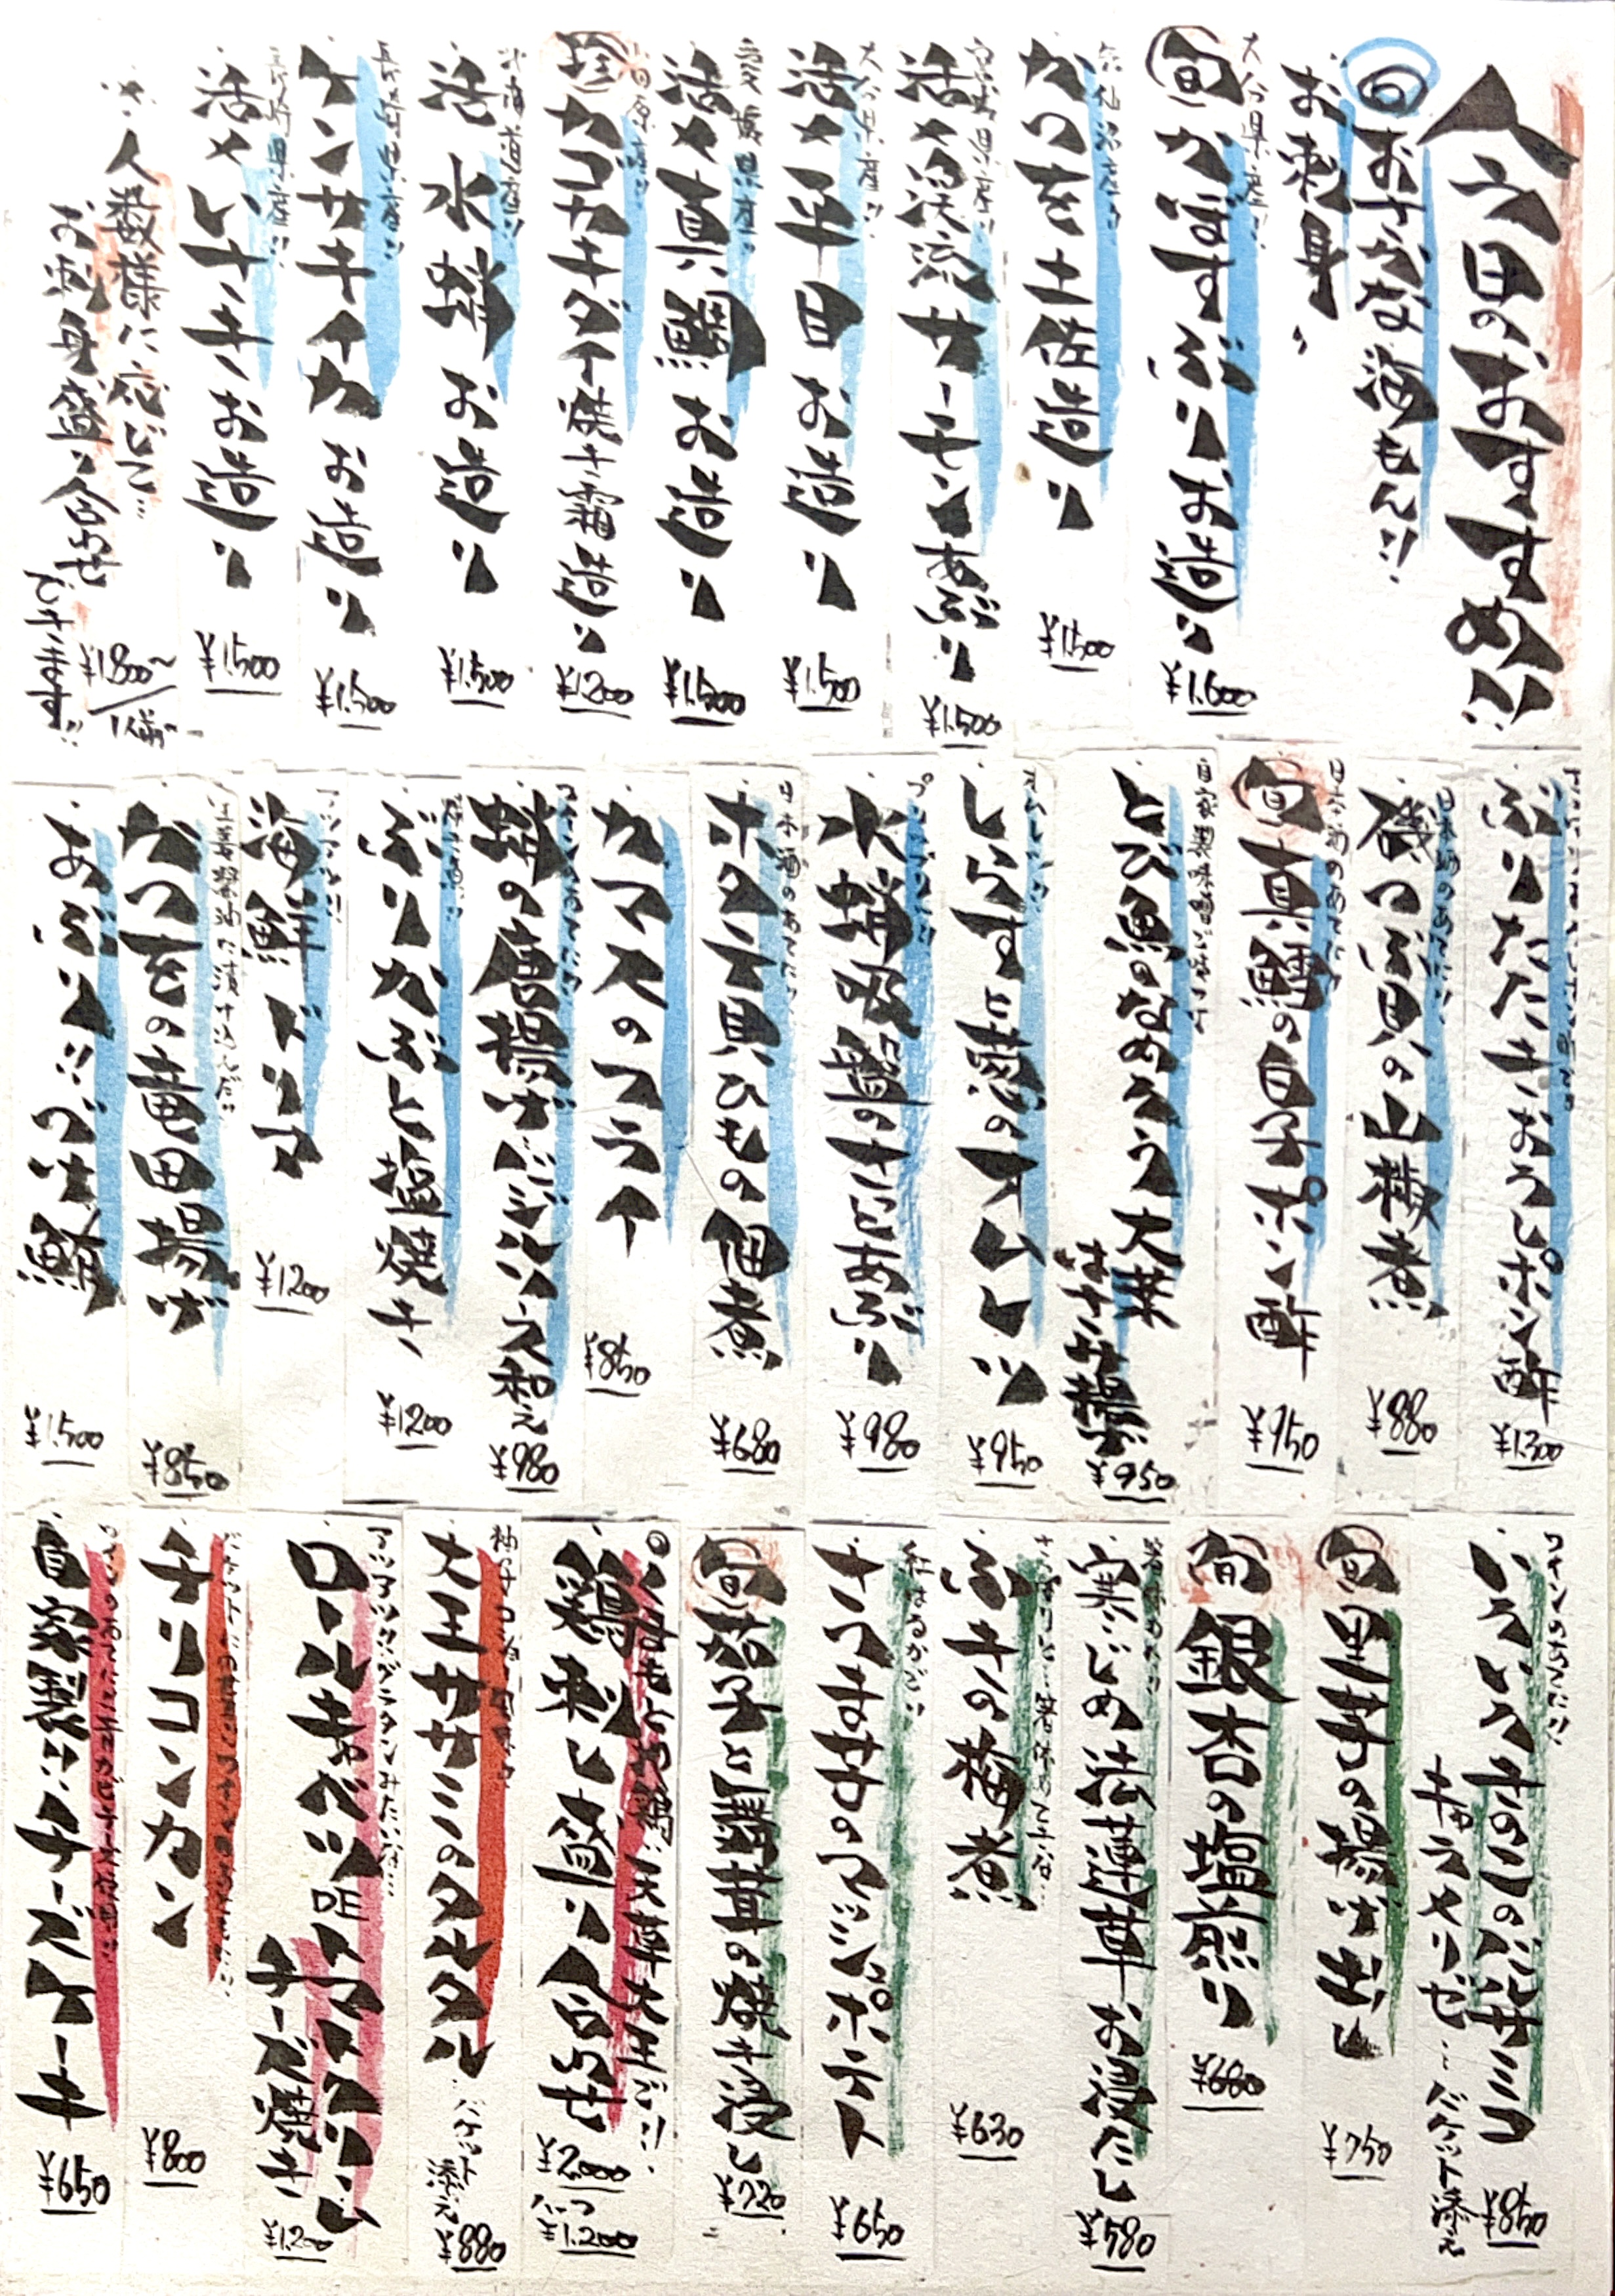 六日のおすすめ!!
おさかな海もん!!
お刺身
大分県産!!
旬 かぼすぶりお造り
¥1.600
かつを土佐造り
¥1.500
宮城県産!!
活〆渓流サーモンあぶり
¥1.500
大分県産!!
活〆平目お造り
¥1.500
愛媛県産!!
活〆真鯛お造り
¥1.500
小田原産!!
珍 カゴカキダイ焼き霜造り
¥1.200
北海道産!!
活 水蛸お造り
¥1.500
長崎県産!!
ケンサキイカお造り
¥1.500
長崎県産!!
活〆レンチョお造り
¥1.500
人数様に応じて…
お刺身盛り合わせ
できます!!
¥1.800〜/1人前〜
ぶりたたきおろしポン酢
¥1.300
日本酒のあてに!!
磯つぶ貝の山椒煮
¥880
日本酒のあてに!!
旬 真鱈の白子ポン酢
¥950
自家製味噌が決めて
とび魚のなめろう大葉
はさみ揚げ
¥950
しらすと葱のオムレツ
¥950
プリプリ!!
水蛸吸盤のさっとあぶり
¥980
日本酒のあてに!!
ホタテ貝ひもの佃煮
¥680
カマスのフライ
¥850
ワインのあてに!!
蛸の唐揚げバジルソース和え
¥980
ぶりかぶと塩焼き
¥1200
アツアツ!!
海鮮ドリア
¥1200
生姜醤油に漬け込んだ!!
かつをの竜田揚げ
¥850
あぶり!!づけ鮪
¥1.500
ワインのあてに!!
いろいろきのこのバルサミコ
キャラメリゼ…バケット添え
¥850
旬 里芋の揚げ出し
¥750
旬 銀杏の塩煎り
¥680
箸休めに!!
寒じめ法蓮草お浸だし
¥580
さっぱりと…箸休めて下さい…
ふキの梅煮
¥630
紅はるかでい
さつま芋のマッシュポテト
¥650
旬 茄子と舞茸の焼き浸し
¥720
天草大王でい!!
鶏刺し盛り合わせ
¥2.000
ハーフ
¥1.200
大王ササミのタルタル…バケット添え
¥880
アツアツグラタンみたいな…
ロールキャベツ DE トマトクリーム
チーズ焼き
¥1.200
チリコンカン
¥800
自家製!!チーズケーキ
¥650